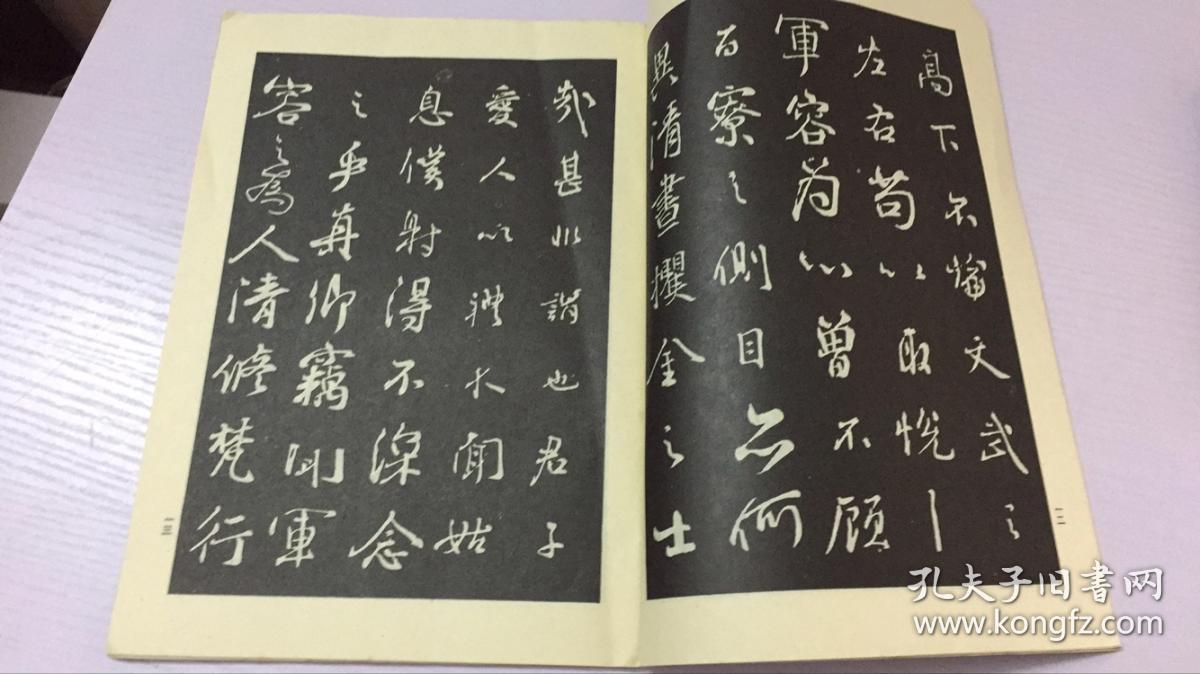 高下不論文武之
左右苟以取悅
軍容為心曾不顧
百寮之側目亦何
異清晝攫金之士
一二
哉甚非謂也君子
愛人以禮不聞姑
息僕射得不深念
之乎真卿竊聞軍
容之為人清脩梵行
一三
孔夫子旧书网
www.kongfz.com